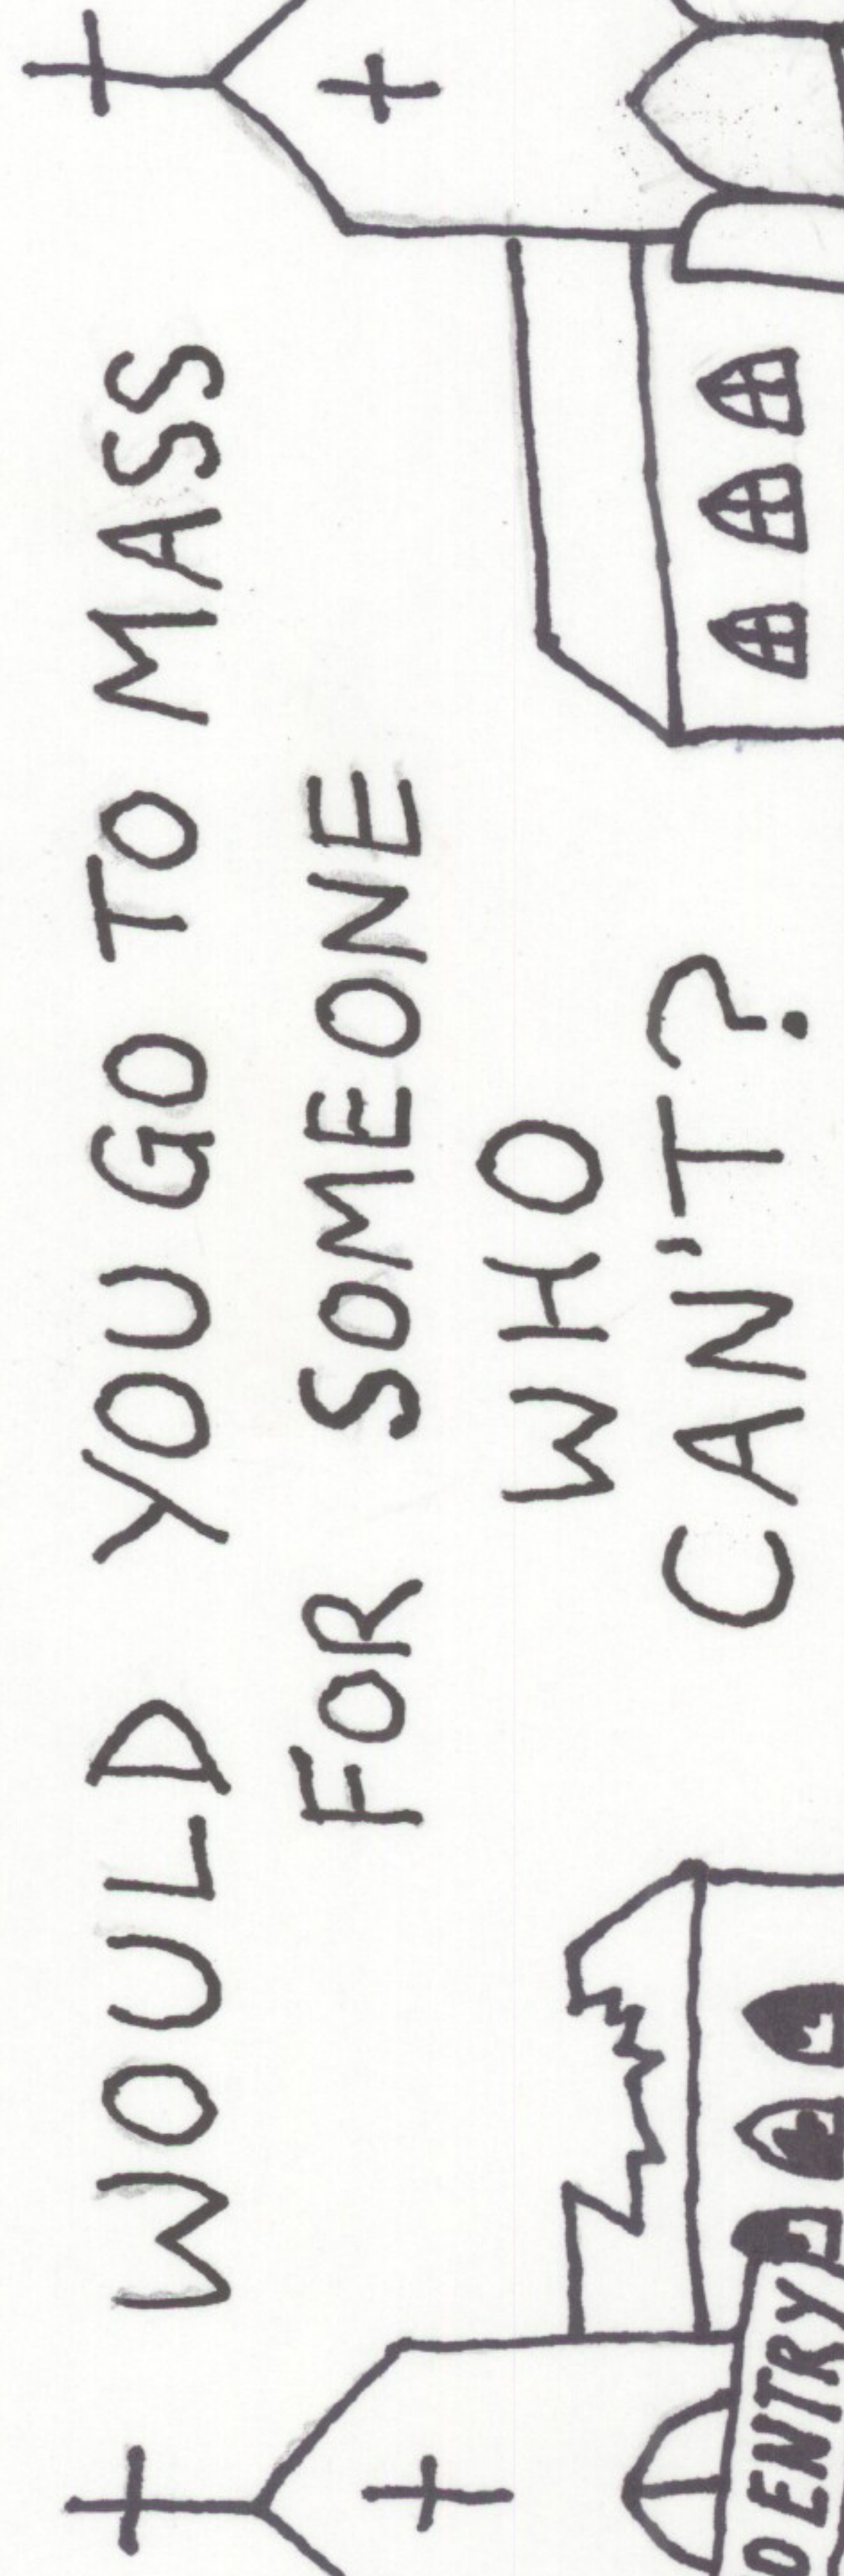 WOULD YOU GO TO MASS
FOR SOMEONE
WHO
CAN'T?
O ENTRY